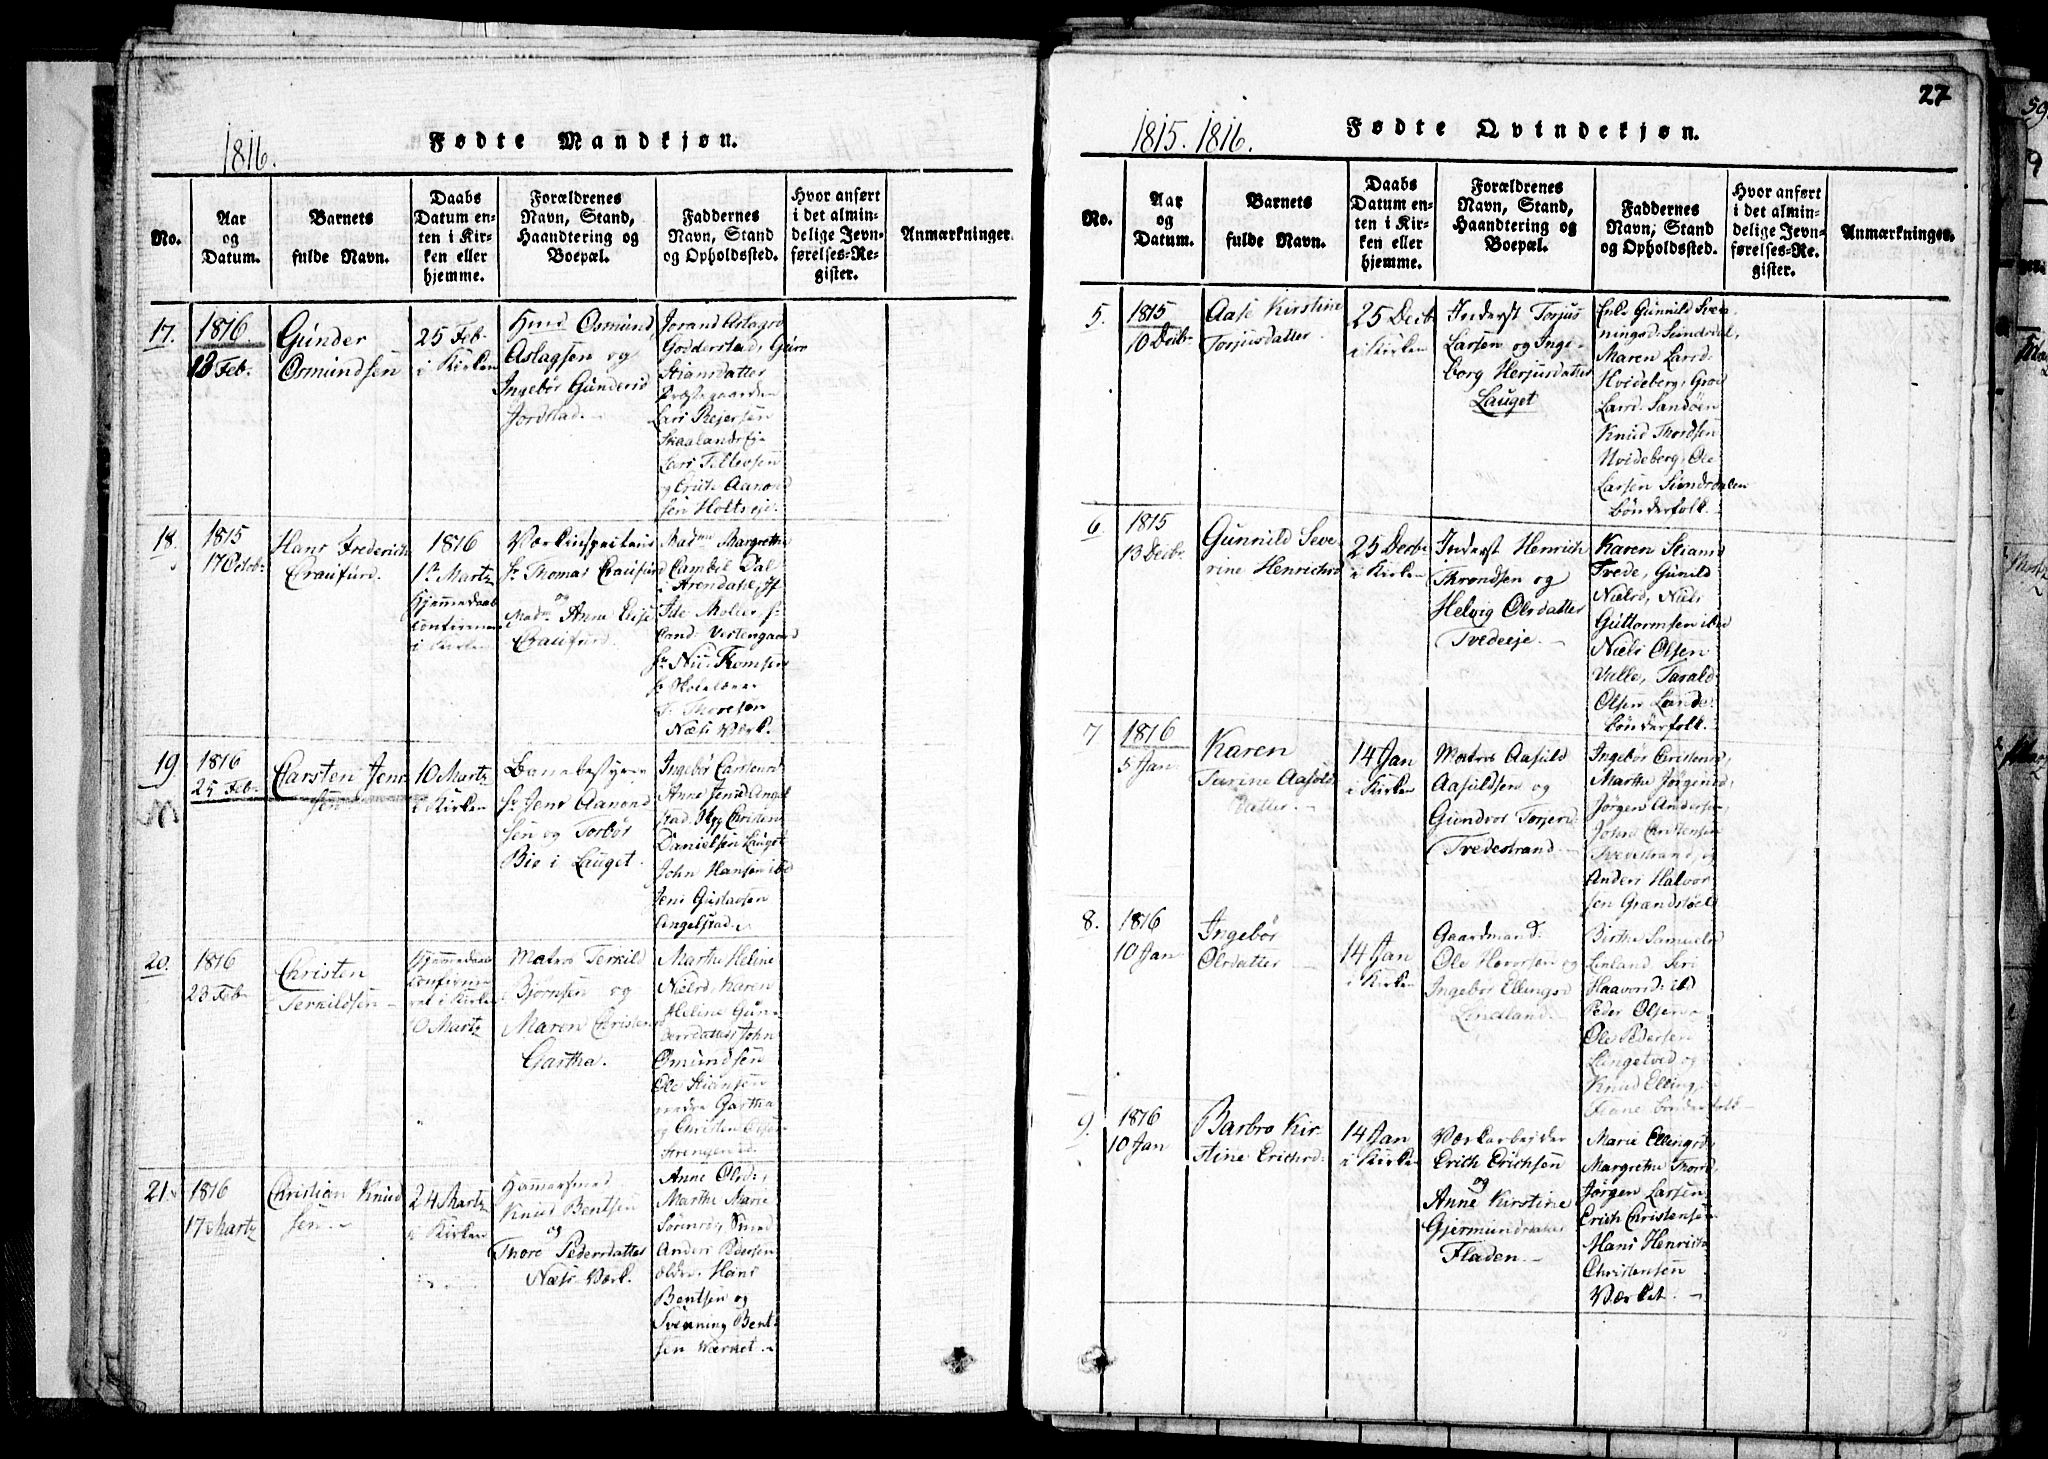 1816.
Fødte Mandkjøn.
No.
Aar
og
Datum.
Barnets
fulde Navn.
Daabs
Datum en-
ten i Kir-
ken eller
hjemme.
Forældrenes
Navn, Stand,
Haandtering og
Boepæl.
Faddernes
Navn, Stand
og Opholdssted.
Hvor anført
i det almin-
delige Jevn-
førelses-Re-
gister.
Anmærkninger.
17.
1816
13 Feb.
Gunder
Osmundsen
25 Feb.
i Kirken
Knud Osmund
Aslagsen og
Ingebor Gundersd
Jordstad.
Jorand Aslagsd
Godderstad, Guro
Stiansdatter
Præstegaarden
Lars Reiersen
Skaalandseje
Lars Tellevsen
og Aanond
sen Holtseje.
18.
1815
17 Octob.
Hans Frederich
Craufurd.
1816
1ste Martz
Hjemmedaab
Confirmeret
i Kirken
Værkinspecteur
Hr Thomas Craufurd
og
Madme Anne Elise
Craufurd.
Madme Margrethe
Cambel Dal
i Arendahl, Jf
Ide Molde
land Vestengaard
Hr Niis Thomsen
Hr Skolelærer
Thoresen
Næs Værk.
19
1816
25 Feb.
Carsten Jen-
sen
10 Martz
i Kirken
Banebestyrer
Hr Jens Aanond
sen og Torbor
Bie i Lauget.
Ingebor Carstensd
Anne Jensd Angel
stad. Christen
Danielsen Lauget
John Hansen ibd
Jens Gustavsen
Engelstad.
20.
1816
23 Feb.
Christen
Terkildsen
Hjemmedaab
Confirme
ret i Kirken
10 Martz
Matros Terkild
Bjornsen og
Maren Christensd
Gartha.
Marthe Heline
Nielsd, Karen
Heline Gun-
dersdatter, John
Omundsen
Ole Stiansen
nedre Gartha
og Christen
21.
1816
17 Martz
Christian Knud
sen.
24 Martz
i Kirken
Hammersmed
Knud Bentsen
og
Thore Pedersdatter
Næs Værk.
Anne Olsd.,
Marthe Marie
Sorensd, Smed
Anders Pedersen
ældre. Hans
Bentsen og
Svenning Bent-
sen Wærket.
27
1815. 1816.
Fødte Qvindekjøn.
No.
Aar
og
Datum.
Barnets
fulde Navn.
Daabs
Datum en-
ten i Kir-
ken eller
hjemme.
Forældrenes
Navn, Stand,
Haandtering og
Boepæl.
Faddernes
Navn, Stand
og Opholdssted.
Hvor anført
i det almin-
delige Jevn-
førelses-Re-
gister.
Anmærkninger.
5.
1815
10 Decbr
Aase Kirstine
Torjusdatter
25 Decb
i Kirken
Inderst Torjus
Larsen og Inge-
borg Herjusdatter
Lauget
Enke Gunnild Sven
ningsd. Sundsdal,
Maren Larsd.
Hvideberg, Groe
Larsd. Sandøen
Knud Thordsen
Hvideberg, Ole
Larsen Sundsdalen
bønderfolk.
6
1815
13 Decbr
Gunnild Seve
rine Henrichsd
25 Decbr
i Kirken
Inderst Henrich
Throndsen og
Helvig Olsdatter
Tvedeeje.
Karen Stiansd
Tvede, Gunild
Nielsd, Niels
Guttormsen ibd
Niels Olsen
Ulle, Tarald
Olsen Lunde
bønderfolk.
7
1816
5 Jan.
Karen
Terine Aasulds
datter.
14 Jan
i Kirken
Matros Aasuld
Aasuldsen og
Gundvor Torjersd
Tvedestrand.
Ingebor Christensd,
Marthe Jørgensd,
Jørgen Andersen,
Christensen
Tvedestrand, og
Anders Halvor
sen Grændstøel
8.
1816
10 Jan
Ingebor
Olsdatter
14 Jan
i Kirken
Gaardmand.
Ole Havorsen og
Ingebor Ellingsd
Lindland.
Birthe Samuelsd
Linland. Siri
Haavorsd. ibd
Peder Olsen
Ole Pedersen
Lingetved og
Knud Elling
bønderfolk
9.
1816
10 Jan
Barbro Kir-
stine Erichsd.
14 Jan
i Kirken
Værkarbeider
Erich Erichsen
og
Anne Kirstine
Gjermundsdatter
Fladen.
Marie Ellingsd,
Margrethe Thordsd,
Jørgen Larsen
Erich Christensen
Hans Henrich
Christensen
Værket.